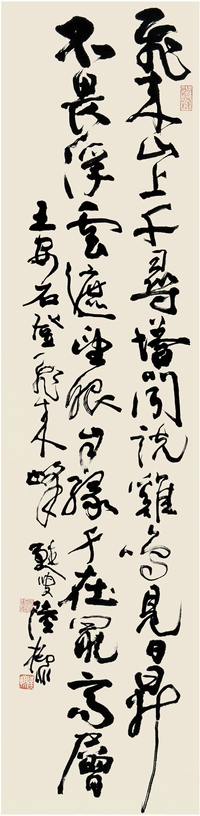 飛來山上千尋塔聞說雞鳴見日昇
不畏浮雲遮望眼自緣身在最高層
王安石登飛來峰 甦叟陸抑非